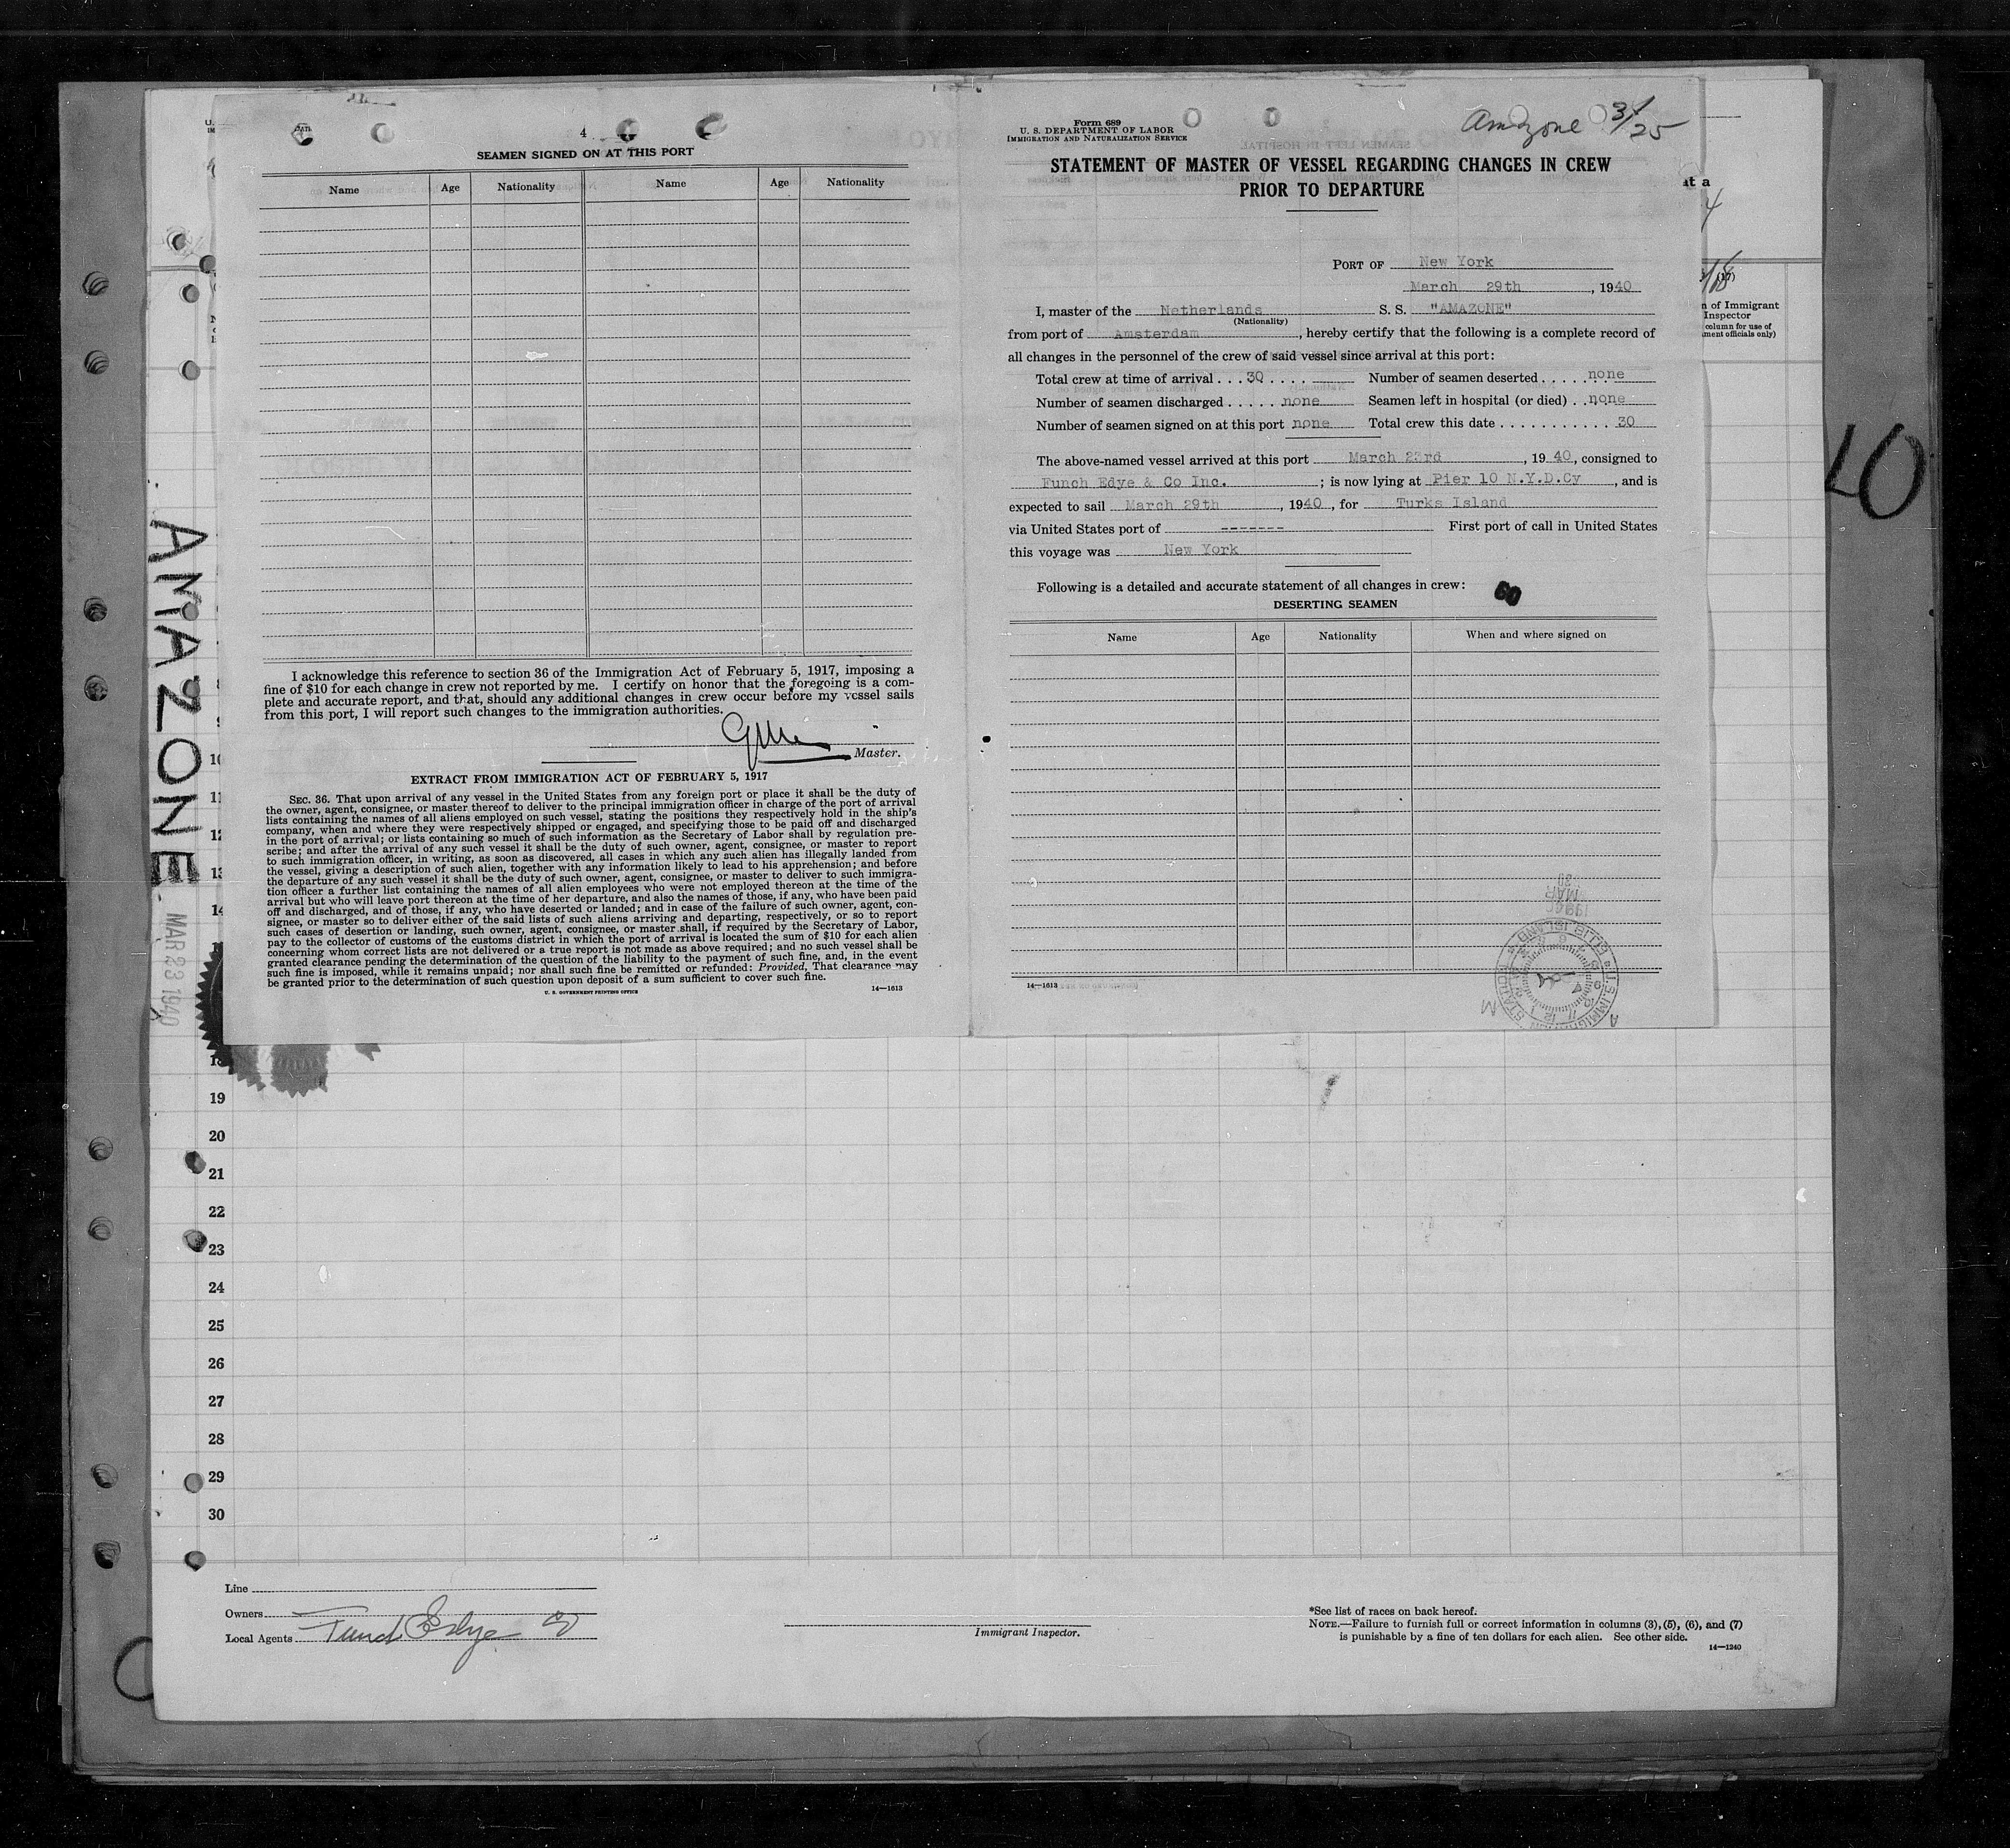 4
SEAMEN SIGNED ON AT THIS PORT
Name Age Nationality Name Age Nationality
I acknowledge this reference to section 36 of the Immigration Act of February 5, 1917, imposing a
fine of $10 for each change in crew not reported by me. I certify on honor that the foregoing is a com-
plete and accurate report, and that, should any additional changes in crew occur before my vessel sails
from this port, I will report such changes to the immigration authorities.
Master.
EXTRACT FROM IMMIGRATION ACT OF FEBRUARY 5, 1917
SEC. 36. That upon arrival of any vessel in the United States from any foreign port or place it shall be the duty of
the owner, agent, consignee, or master thereof to deliver to the principal immigration officer in charge of the port of arrival
lists containing the names of all aliens employed on such vessel, stating the positions they respectively hold in the ship's
company, when and where they were respectively shipped or engaged, and specifying those to be paid off and discharged
in the port of arrival; or lists containing so much of such information as the Secretary of Labor shall by regulation pre-
scribe; and after the arrival of any such vessel it shall be the duty of such owner, agent, consignee, or master to report
to such immigration officer, in writing, as soon as discovered, all cases in which any such alien has illegally landed from
the vessel, giving a description of such alien, together with any information likely to lead to his apprehension; and before
the departure of any such vessel it shall be the duty of such owner, agent, consignee, or master to deliver to such immigra-
tion officer a further list containing the names of all alien employees who were not employed thereon at the time of the
arrival but who will leave port thereon at the time of her departure, and also the names of those, if any, who have been paid
off and discharged, and of those, if any, who have deserted or landed; and in case of the failure of such owner, agent, con-
signee, or master so to deliver either of the said lists of such aliens arriving and departing, respectively, or so to report
such cases of desertion or landing, such owner, agent, consignee, or master shall, if required by the Secretary of Labor,
pay to the collector of customs of the customs district in which the port of arrival is located the sum of $10 for each alien
concerning whom correct lists are not delivered or a true report is not made as above required; and no such vessel shall be
granted clearance pending the determination of the question of the liability to the payment of such fine, and, in the event
such fine is imposed, while it remains unpaid; nor shall such fine be remitted or refunded: Provided, That clearance may
be granted prior to the determination of such question upon deposit of a sum sufficient to cover such fine.
U. S. GOVERNMENT PRINTING OFFICE 14—1613
Form 689
U. S. DEPARTMENT OF LABOR
IMMIGRATION AND NATURALIZATION SERVICE
Amazone 3/25
STATEMENT OF MASTER OF VESSEL REGARDING CHANGES IN CREW
PRIOR TO DEPARTURE
PORT OF New York
March 29th, 1940
I, master of the Netherlands S. S. "AMAZONE"
(Nationality)
from port of Amsterdam, hereby certify that the following is a complete record of
all changes in the personnel of the crew of said vessel since arrival at this port:
Total crew at time of arrival . . . 30 . . . . Number of seamen deserted . . . . . none
Number of seamen discharged . . . . . none Seamen left in hospital (or died) . . none
Number of seamen signed on at this port none Total crew this date . . . . . . . . . . . 30
The above-named vessel arrived at this port March 23rd, 1940, consigned to
Funch Edye & Co Inc. ; is now lying at Pier 10 N.Y.D.Cy, and is
expected to sail March 29th, 1940, for Turks Island
via United States port of ------- First port of call in United States
this voyage was New York
Following is a detailed and accurate statement of all changes in crew:
DESERTING SEAMEN
Name Age Nationality When and where signed on
14—1613
at a
(17)
n of Immigrant
Inspector
column for use of
ment officials only)
10
AMAZONE
MAR 23 1940
10
11
12
13
14
18
19
20
21
22
23
24
25
26
27
28
29
30
Line
Owners
Local Agents Funch Edye Co
Immigrant Inspector.
*See list of races on back hereof.
NOTE.—Failure to furnish full or correct information in columns (3), (5), (6), and (7)
is punishable by a fine of ten dollars for each alien. See other side.
14—1240